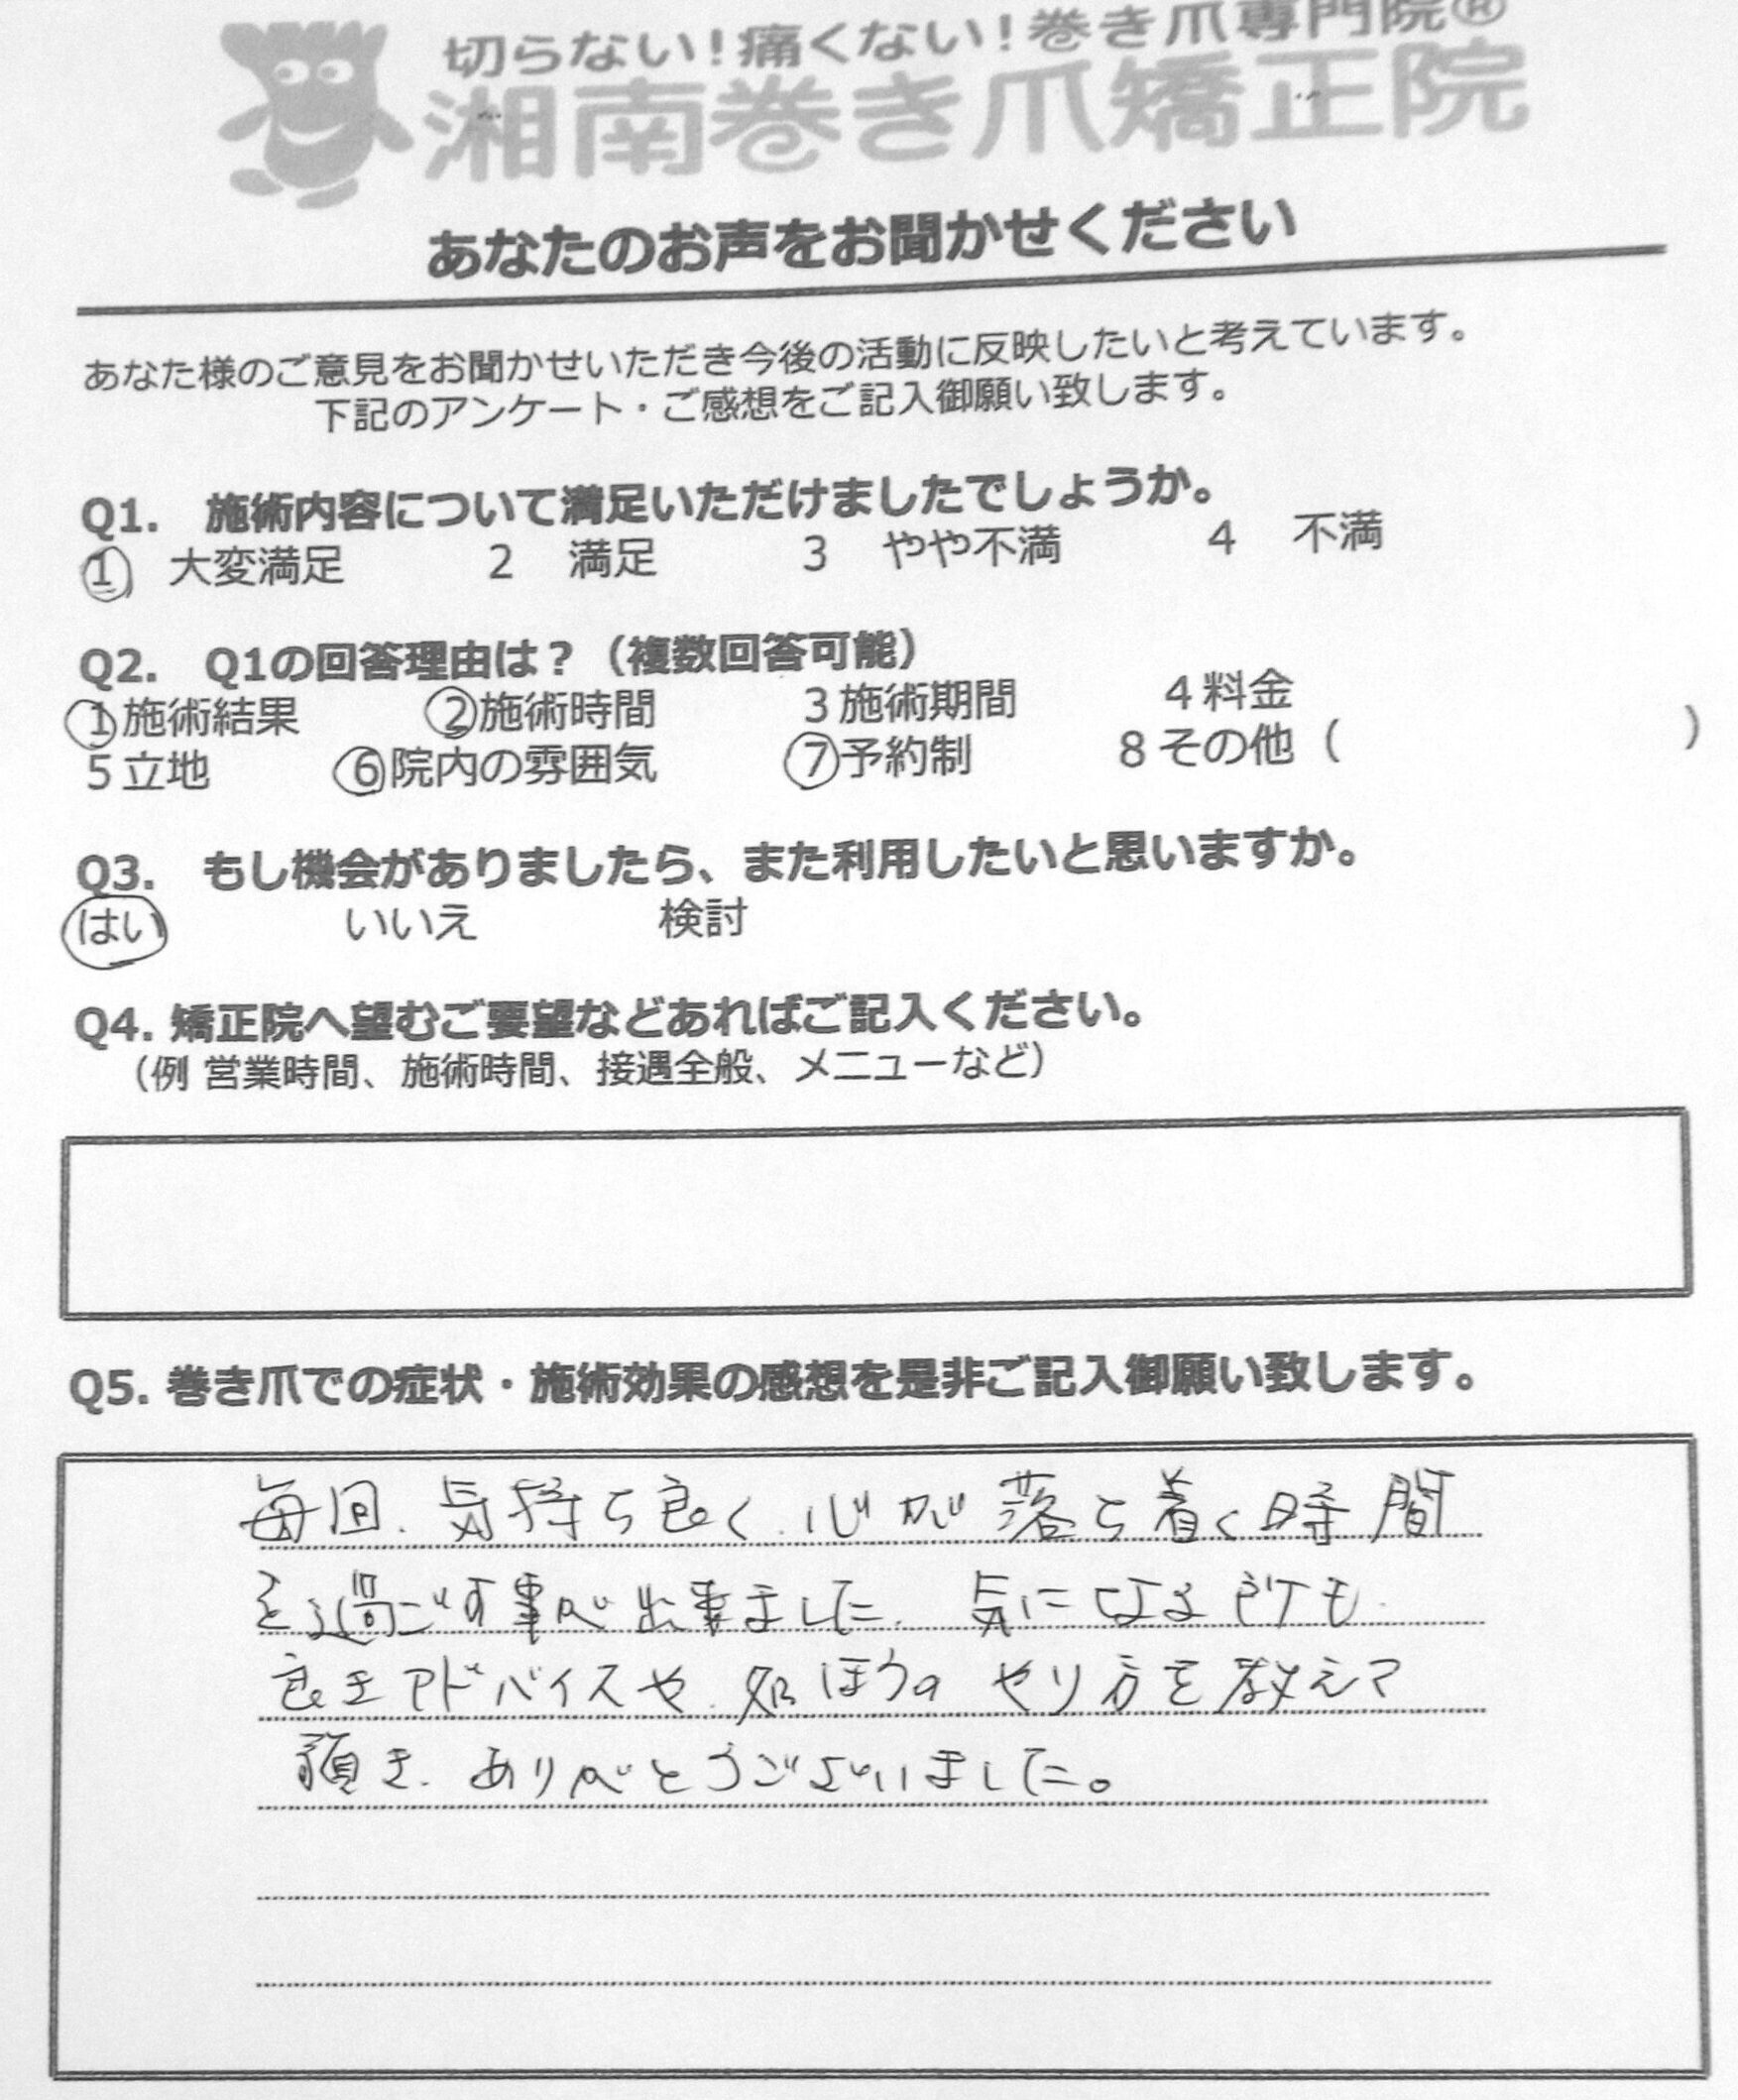 切らない！痛くない！巻き爪専門院®
湘南巻き爪矯正院
あなたのお声をお聞かせください
あなた様のご意見をお聞かせいただき今後の活動に反映したいと考えています。
下記のアンケート・ご感想をご記入御願い致します。
Q1. 施術内容について満足いただけましたでしょうか。
1 大変満足 2 満足 3 やや不満 4 不満
Q2. Q1の回答理由は？（複数回答可能）
1 施術結果 2 施術時間 3 施術期間 4 料金
5 立地 6 院内の雰囲気 7 予約制 8 その他（ ）
Q3. もし機会がありましたら、また利用したいと思いますか。
はい いいえ 検討
Q4. 矯正院へ望むご要望などあればご記入ください。
（例 営業時間、施術時間、接遇全般、メニューなど）
Q5. 巻き爪での症状・施術効果の感想を是非ご記入御願い致します。
毎回、気持ち良く、心が落ち着く時間
を過ごす事が出来ました。気になる所も
良きアドバイスや、処ほうのやり方を教えて
頂き、ありがとうございました。